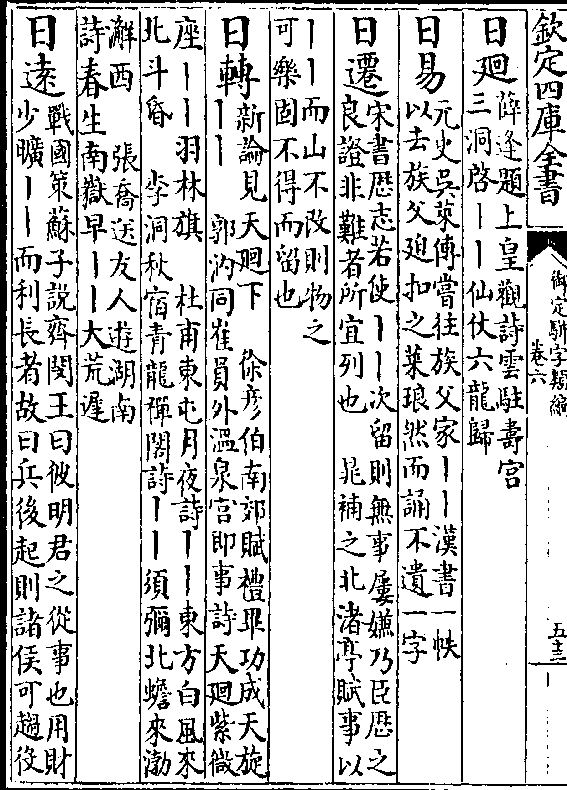 欽定四庫全書
御定騈字類編
卷六
五十三
日廻
薛逢題上皇觀詩雲駐壽宮
三洞啓丨丨仙仗六龍歸
日易
元史吳萊傳嘗往族父家丨丨漢書一帙
以去族父廹扣之萊琅然而誦不遺一字
日遷
宋書厯志若使丨丨次留則無事屢嫌乃臣厯之
良證非難者所宜列也 晁補之北渚亭賦事以
丨丨而山不改則物之
可樂固不得而留也
日轉
新論見天廻下 徐彦伯南郊賦禮畢功成天旋
丨丨 郭汭同崔員外溫泉宮即事詩天廻紫微
座丨丨羽林旗 杜甫東屯月夜詩丨丨東方白風來
北斗昏 李洞秋宿青龍禪閣詩丨丨須彌北蟾來渤
澥西 張喬送友人遊湖南
詩春生南嶽早丨丨大荒遲
日逺
戰國策蘇子説齊閔王曰彼明君之從事也用財
少曠丨丨而利長者故曰兵後起則諸侯可趨役